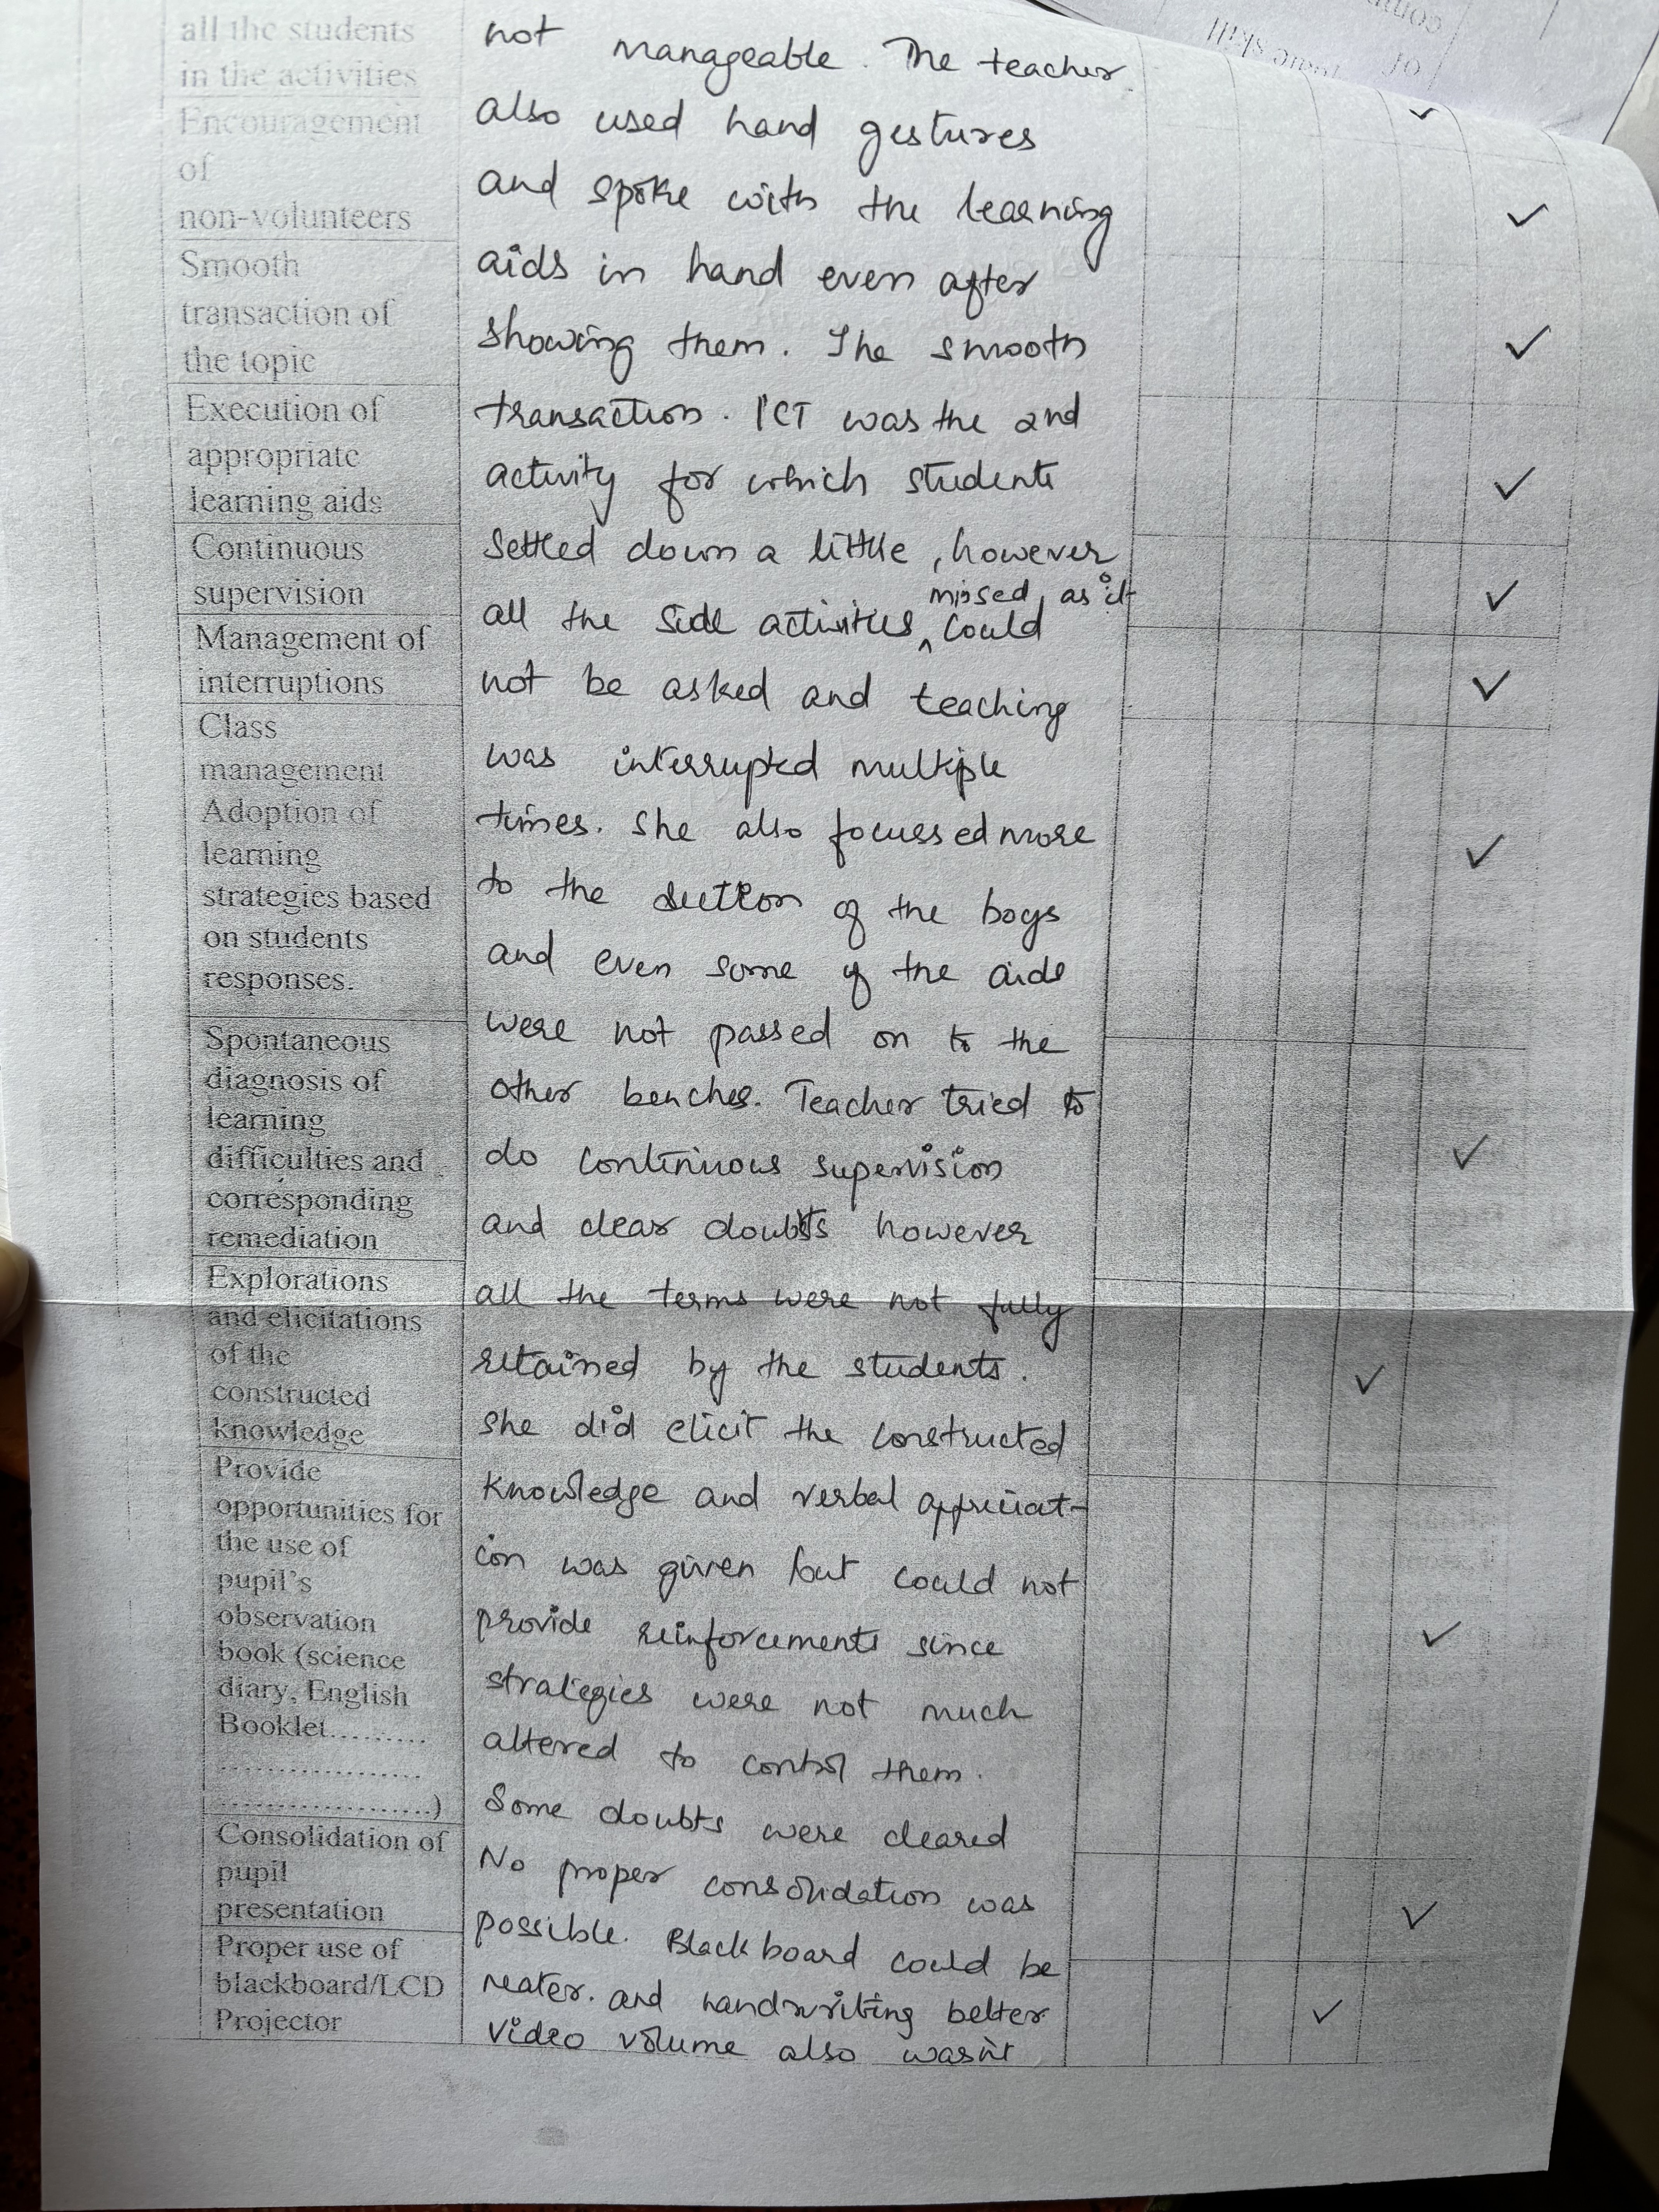 all the students
in the activities
Encouragement
of
non-volunteers
Smooth
transaction of
the topic
Execution of
appropriate
learning aids
Continuous
supervision
Management of
interruptions
Class
management
Adoption of
learning
strategies based
on students
responses.
Spontaneous
diagnosis of
learning
difficulties and
corresponding
remediation
Explorations
and elicitations
of the
constructed
knowledge
Provide
opportunities for
the use of
pupil's
observation
book (science
diary, English
Booklet.........
...................
....................)
Consolidation of
pupil
presentation
Proper use of
blackboard/LCD
Projector
not manageable. The teacher
also used hand gestures
and spoke with the learning
aids in hand even after
showing them. The smooth
transaction. ICT was the 2nd
activity for which students
settled down a little, however
all the side activities missed, as it could
not be asked and teaching
was interrupted multiple
times. She also focussed more
to the section of the boys
and even some of the aids
were not passed on to the
other benches. Teacher tried to
do continuous supervision
and clear doubts however
all the terms were not fully
retained by the students.
She did elicit the constructed
knowledge and verbal appreciat-
ion was given but could not
provide reinforcements since
strategies were not much
altered to control them.
Some doubts were cleared
No proper consolidation was
possible. Blackboard could be
neater. and handwriting better
video volume also wasn't